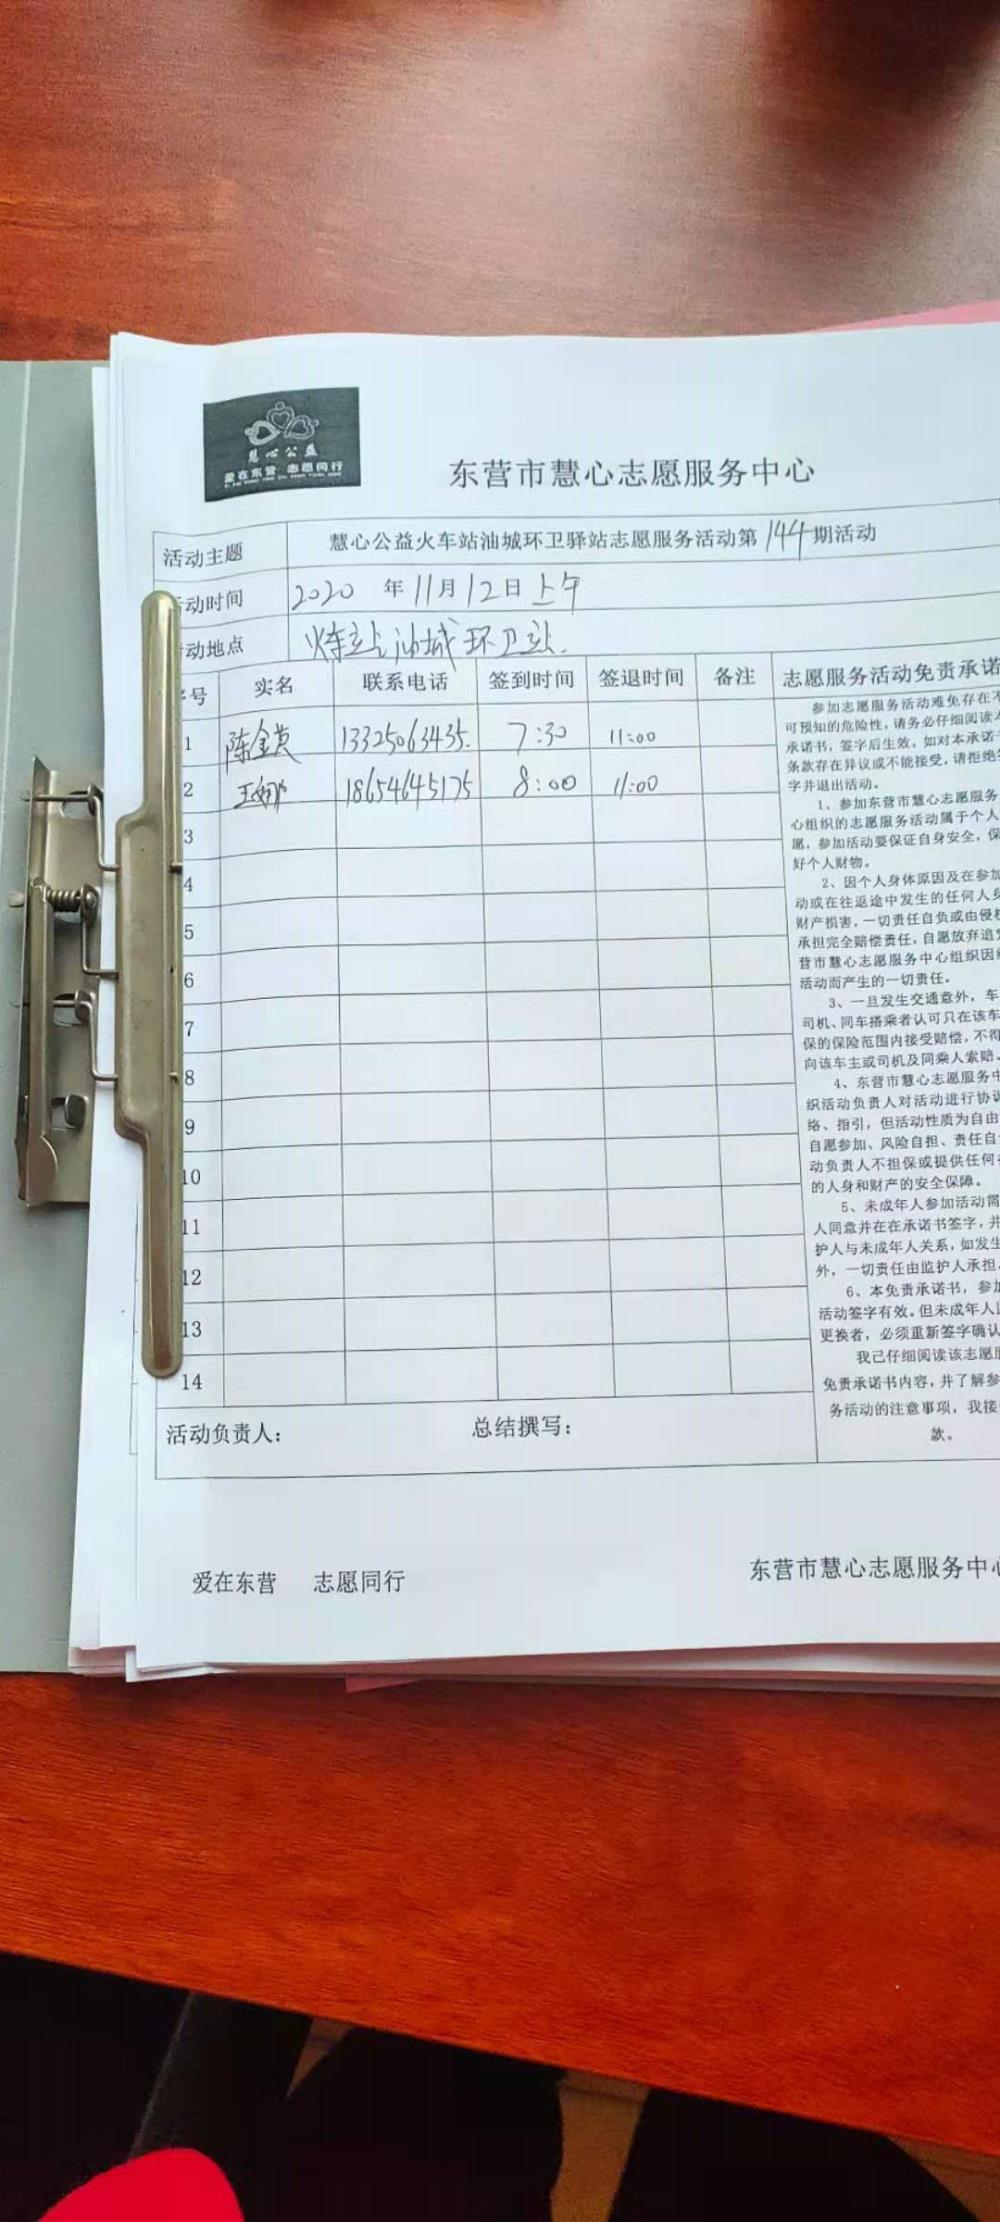 慧心公益
爱在东营 志愿同行
东营市慧心志愿服务中心
活动主题 慧心公益火车站油城环卫驿站志愿服务活动第144期活动
动时间 2020 年 11月 12日 上午
动地点 火车站油城环卫站.
号 实名 联系电话 签到时间 签退时间 备注 志愿服务活动免责承诺
1 陈金英 13325063435. 7:30 11:00
2 王娜 18654645175 8:00 11:00
3
4
5
6
7
8
9
10
11
12
13
14
参加志愿服务活动难免存在不
可预知的危险性,请务必仔细阅读
承诺书,签字后生效。如对本承诺
条款存在异议或不能接受,请拒绝
字并退出活动。
1、参加东营市慧心志愿服务
心组织的志愿服务活动属于个人
愿,参加活动要保证自身安全,保
好个人财物。
2、因个人身体原因及在参加
动或在往返途中发生的任何人身
财产损害,一切责任自负或由侵权
承担完全赔偿责任,自愿放弃追究
营市慧心志愿服务中心组织因
活动而产生的一切责任。
3、一旦发生交通意外,车
司机、同车搭乘者认可只在该车
保的保险范围内接受赔偿,不得
向该车主或司机及同乘人索赔。
4、东营市慧心志愿服务中
织活动负责人对活动进行协调
络、指引,但活动性质为自由
自愿参加、风险自担、责任自
动负责人不担保或提供任何
的人身和财产的安全保障。
5、未成年人参加活动需
人同意并在在承诺书签字,并
护人与未成年人关系,如发生
外,一切责任由监护人承担。
6、本免责承诺书,参加
活动签字有效。但未成年人
更换者,必须重新签字确认
我已仔细阅读该志愿
免责承诺书内容,并了解参
务活动的注意事项,我接
款。
活动负责人: 总结撰写:
爱在东营 志愿同行 东营市慧心志愿服务中心